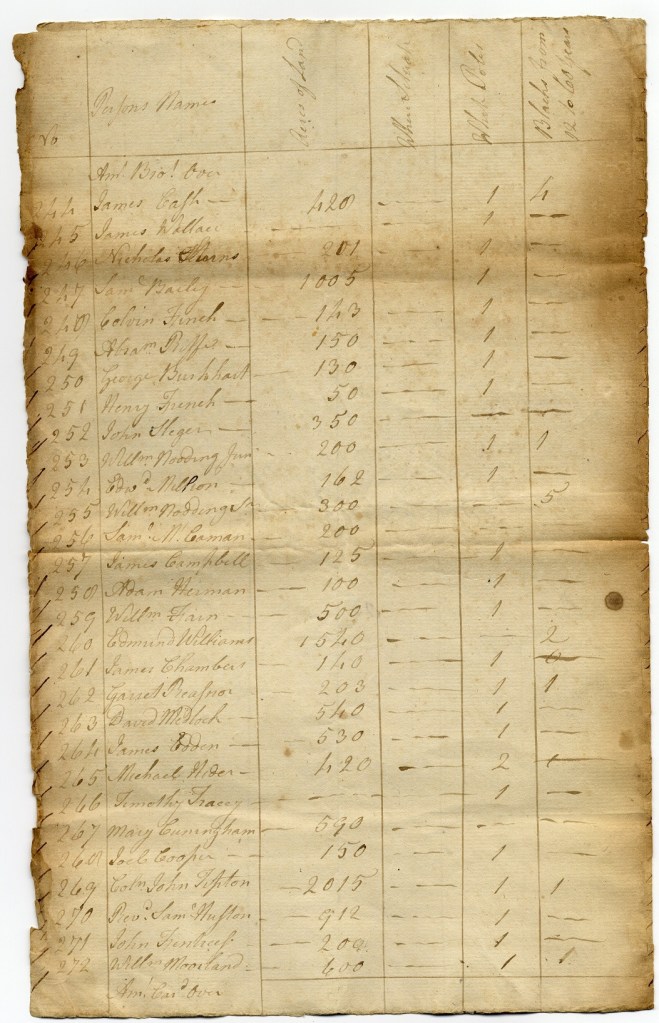 No Persons Names Acres of Land White Poles Blacks from 12 to 60 years
Amt. Brot. Over
244 James Cash — 428 — 1 4
245 James Wallace — — — 1 —
246 Nicholas — 201 — 1 —
247 Saml. Bailey — 1005 — 1 —
248 Colvin Finch — 143 — 1 —
249 Abram — 150 — 1 —
250 George Burkhart — 130 — 1 —
251 Henry French — 50 — 1 —
252 John Steger — 350 — — —
253 Willm. Nodding Junr 200 — 1 1
254 Edwd. — 162 — 1 —
255 Willm Nodding Sr 300 — — 5
256 Saml. 200 — — —
257 James Campbell — 125 — 1 —
258 Adam Herman — 100 — 1 —
259 Willm Fain — 500 — 1 —
260 Edmund Williams 1540 — — 2
261 James Chambers 140 — 1 —
262 Garret Reasnor — 203 — 1 1
263 David Medlock — 540 — 1 —
264 James Edden — 530 — 1 —
265 Michael Hider — 420 — 2 1
266 Timothy Tracey — — — 1 —
267 Mary Cuningham — 590 — — —
268 Joel Cooper — 150 — 1 —
269 Coln John Tipton — 2015 — 1 1
270 Revd. Saml. Huston — 912 — 1 —
271 John — 200 — 1 —
272 Willm Moorland — 600 — 1 1
Amt. Card. Over